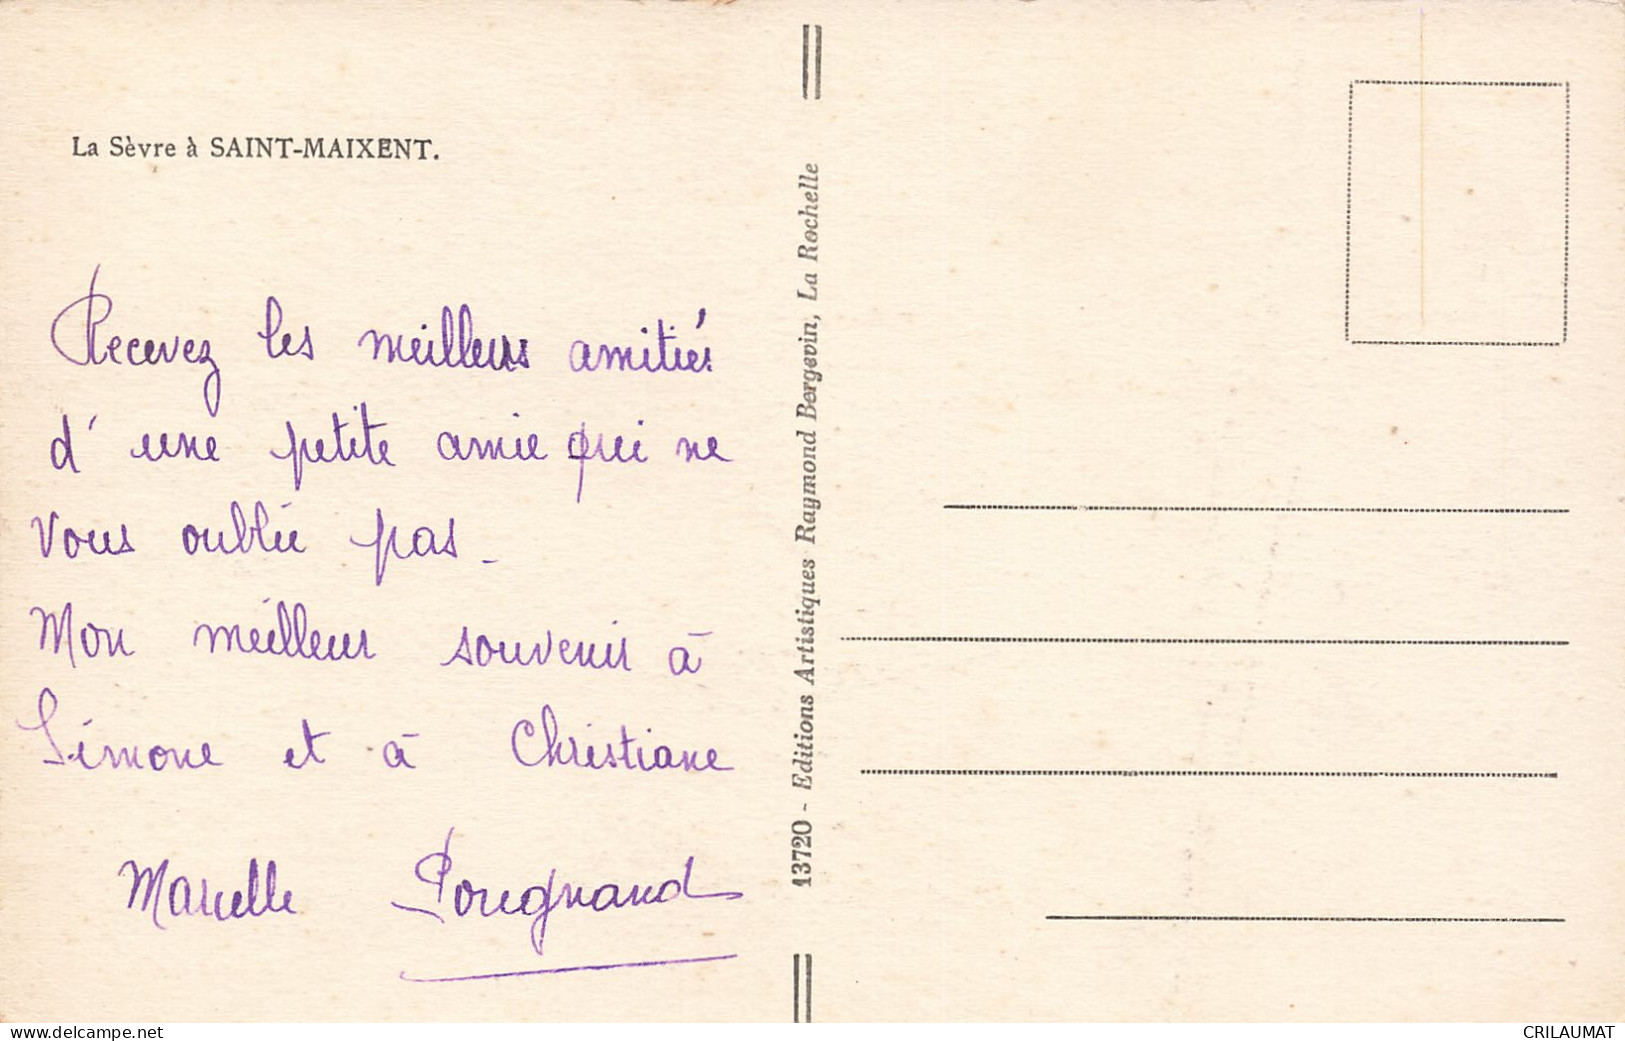 La Sèvre à SAINT-MAIXENT.
Recevez les meilleurs amitiés
d'une petite amie qui ne
vous oublie pas -
Mon meilleur souvenir à
Simone et à Christiane
Marcelle Pougnand
13720 - Editions Artistiques Raymond Bergevin, La Rochelle
www.delcampe.net
CRILAUMAT